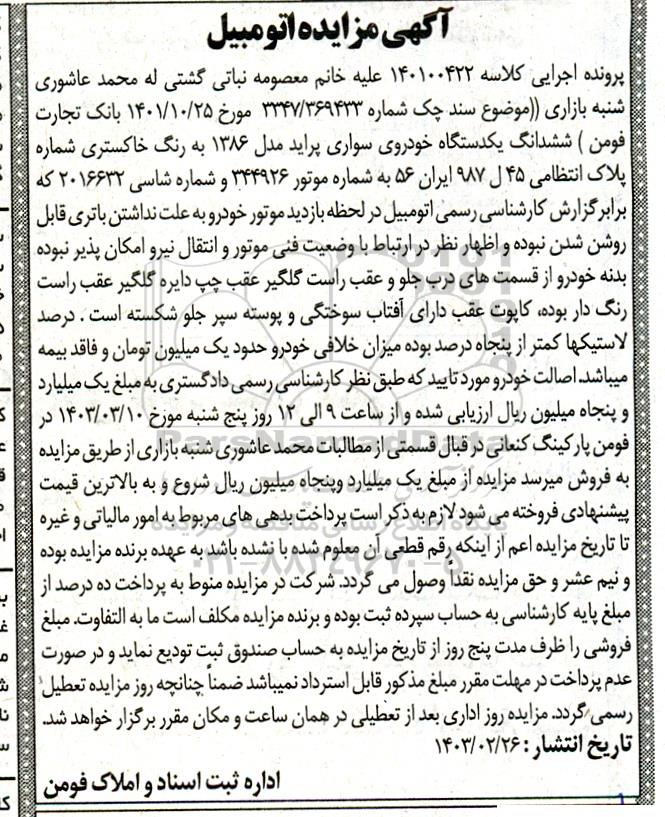 آگهی مزایده اتومبیل
پرونده اجرایی کلاسه ۱۴۰۱۰۰۴۲۲ علیه خانم معصومه نباتی گشتی له محمد عاشوری
شنبه بازاری ((موضوع سند چک شماره ۳۳۴۷/۳۶۹۴۳۳ مورخ ۱۴۰۱/۱۰/۲۵ بانک تجارت
فومن ) ششدانگ یکدستگاه خودروی سواری پراید مدل ۱۳۸۶ به رنگ خاکستری شماره
پلاک انتظامی ۴۵ ل ۹۸۷ ایران ۵۶ به شماره موتور ۳۴۴۹۲۶ و شماره شاسی ۲۰۱۶۶۳۲ که
برابر گزارش کارشناسی رسمی اتومبیل در لحظه بازدید موتور خودرو به علت نداشتن باتری قابل
روشن شدن نبوده و اظهار نظر در ارتباط با وضعیت فنی موتور و انتقال نیرو امکان پذیر نبوده
بدنه خودرو از قسمت های درب جلو و عقب راست گلگیر عقب چپ دایره گلگیر عقب راست
رنگ دار بوده، کاپوت عقب دارای آفتاب سوختگی و پوسته سپر جلو شکسته است . درصد
لاستیکها کمتر از پنجاه درصد بوده میزان خلافی خودرو حدود یک میلیون تومان و فاقد بیمه
میباشد. اصالت خودرو مورد تایید که طبق نظر کارشناسی رسمی دادگستری به مبلغ یک میلیارد
و پنجاه میلیون ریال ارزیابی شده و از ساعت ۹ الی ۱۲ روز پنج شنبه مورخ ۱۴۰۳/۰۳/۱۰ در
فومن پارکینگ کنعانی در قبال قسمتی از مطالبات محمد عاشوری شنبه بازاری از طریق مزایده
به فروش میرسد مزایده از مبلغ یک میلیارد وپنجاه میلیون ریال شروع و به بالاترین قیمت
پیشنهادی فروخته می شود لازم به ذکر است پرداخت بدهی های مربوط به امور مالیاتی و غیره
تا تاریخ مزایده اعم از اینکه رقم قطعی آن معلوم شده یا نشده باشد به عهده برنده مزایده بوده
و نیم عشر و حق مزایده نقداً وصول می گردد. شرکت در مزایده منوط به پرداخت ده درصد از
مبلغ پایه کارشناسی به حساب سپرده ثبت بوده و برنده مزایده مکلف است ما به التفاوت. مبلغ
فروشی را ظرف مدت پنج روز از تاریخ مزایده به حساب صندوق ثبت تودیع نماید و در صورت
عدم پرداخت در مهلت مقرر مبلغ مذکور قابل استرداد نمیباشد ضمناً چنانچه روز مزایده تعطیل
رسمی گردد. مزایده روز اداری بعد از تعطیلی در همان ساعت و مکان مقرر برگزار خواهد شد.
تاریخ انتشار : ۱۴۰۳/۰۲/۲۶
اداره ثبت اسناد و املاک فومن